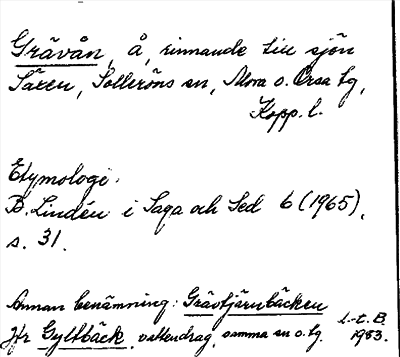 Grävån, å, rinnande till sjön
Säxen, Solleröns sn, Mora o. Orsa tg,
Kopp. l.
Etymologi:
B. Lindén i Saga och Sed 6 (1965),
s. 31.
Annan benämning: Grävtjärnbäcken
Jfr Gyltbäck, vattendrag, samma sn o. tg.
L.-E. B.
1983.